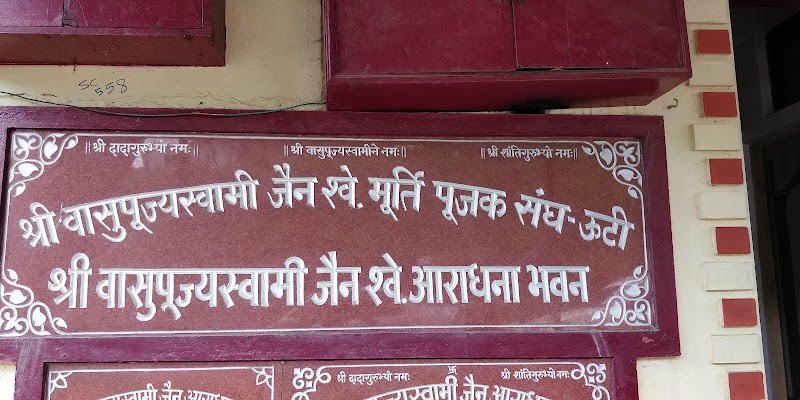 SC 558
॥श्री दादागुरुभ्यो नमः॥ ॥श्री वासुपूज्यस्वामीने नमः॥ ॥श्री शांतिगुरुभ्यो नमः॥
श्री वासुपूज्यस्वामी जैन श्वे. मूर्ति पूजक संघ-ऊटी
श्री वासुपूज्यस्वामी जैन श्वे. आराधना भवन
श्री दादागुरुभ्यो नमः श्री शांतिगुरुभ्यो नमः
स्वामी जैन
पूज्यस्वामी जैन